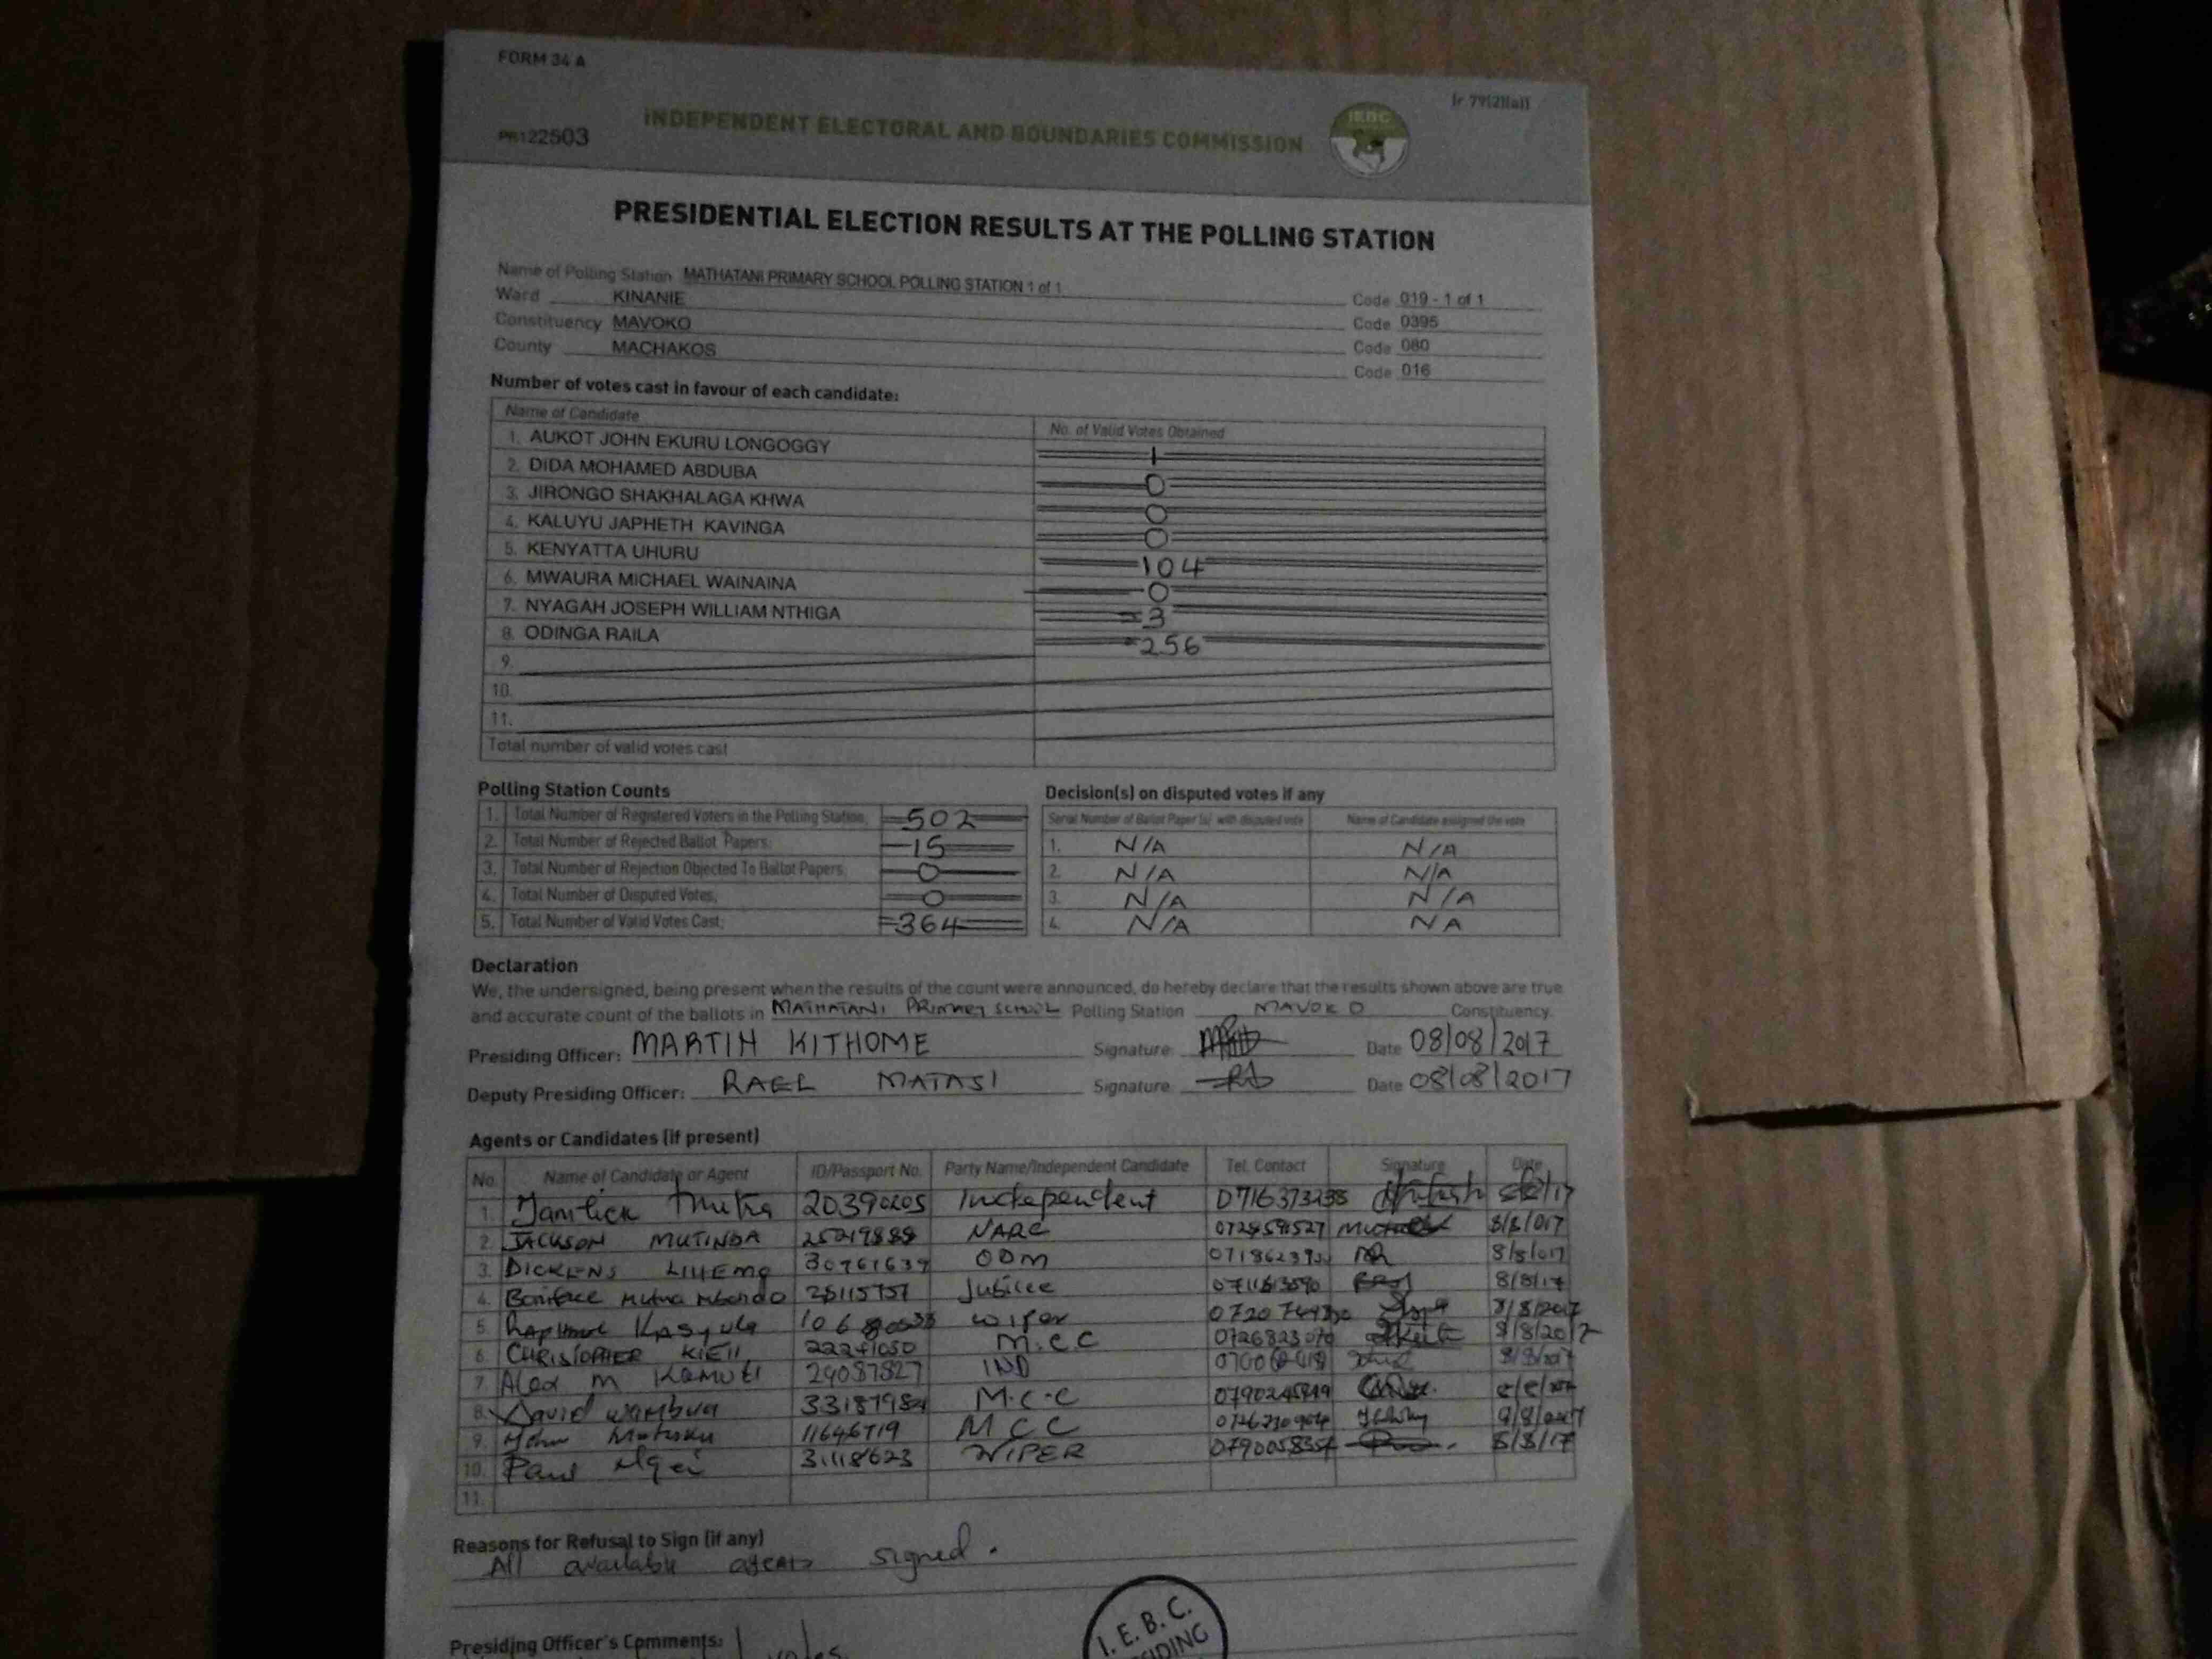 FORM 34 A
(r 79(2)(a))
PR122503
INDEPENDENT ELECTORAL AND BOUNDARIES COMMISSION
IEBC
PRESIDENTIAL ELECTION RESULTS AT THE POLLING STATION
Name of Polling Station MATHATANI PRIMARY SCHOOL POLLING STATION 1 of 1 Code 019 - 1 of 1
Ward KINANIE Code 0395
Constituency MAVOKO Code 080
County MACHAKOS Code 016
Number of votes cast in favour of each candidate:
Name of Candidate No. of Valid Votes Obtained
1. AUKOT JOHN EKURU LONGOGGY 1
2. DIDA MOHAMED ABDUBA 0
3. JIRONGO SHAKHALAGA KHWA 0
4. KALUYU JAPHETH KAVINGA 0
5. KENYATTA UHURU 104
6. MWAURA MICHAEL WAINAINA 0
7. NYAGAH JOSEPH WILLIAM NTHIGA 3
8. ODINGA RAILA 256
9.
10.
11.
Total number of valid votes cast
Polling Station Counts
1. Total Number of Registered Voters in the Polling Station; 502
2. Total Number of Rejected Ballot Papers; 15
3. Total Number of Rejection Objected To Ballot Papers; 0
4. Total Number of Disputed Votes; 0
5. Total Number of Valid Votes Cast; 364
Decision(s) on disputed votes if any
Serial Number of Ballot Paper (s) with disputed vote Name of Candidate assigned the vote
1. N/A N/A
2. N/A N/A
3. N/A N/A
4. N/A NA
Declaration
We, the undersigned, being present when the results of the count were announced, do hereby declare that the results shown above are true
and accurate count of the ballots in MATHATANI PRIMARY SCHOOL Polling Station MAVOKO Constituency.
Presiding Officer: MARTIN KITHOME Signature Date 08/08/2017
Deputy Presiding Officer: RAEL MATASI Signature Date 08/08/2017
Agents or Candidates (if present)
No. Name of Candidate or Agent ID/Passport No. Party Name/Independent Candidate Tel. Contact Signature Date
1. Independent
2. JACKSON MUTINDA NARC 8/8/017
3. DICKENS 30761639 ODM 8/8/017
4. Boniface Mutua Jubilee 8/8/17
5. Kasyula wiper 8/8/2017
6. CHRISTOPHER KIEII 22241050 M.C.C 8/8/2017
7. Alex M Kamuti 24087827 IND
8. David Wambua M.C.C
9. John 11646719 MCC
10. Paul 31118623 WIPER 8/8/17
11.
Reasons for Refusal to Sign (if any)
All available agents signed.
Presiding Officer's Comments: votes
I. E. B. C.